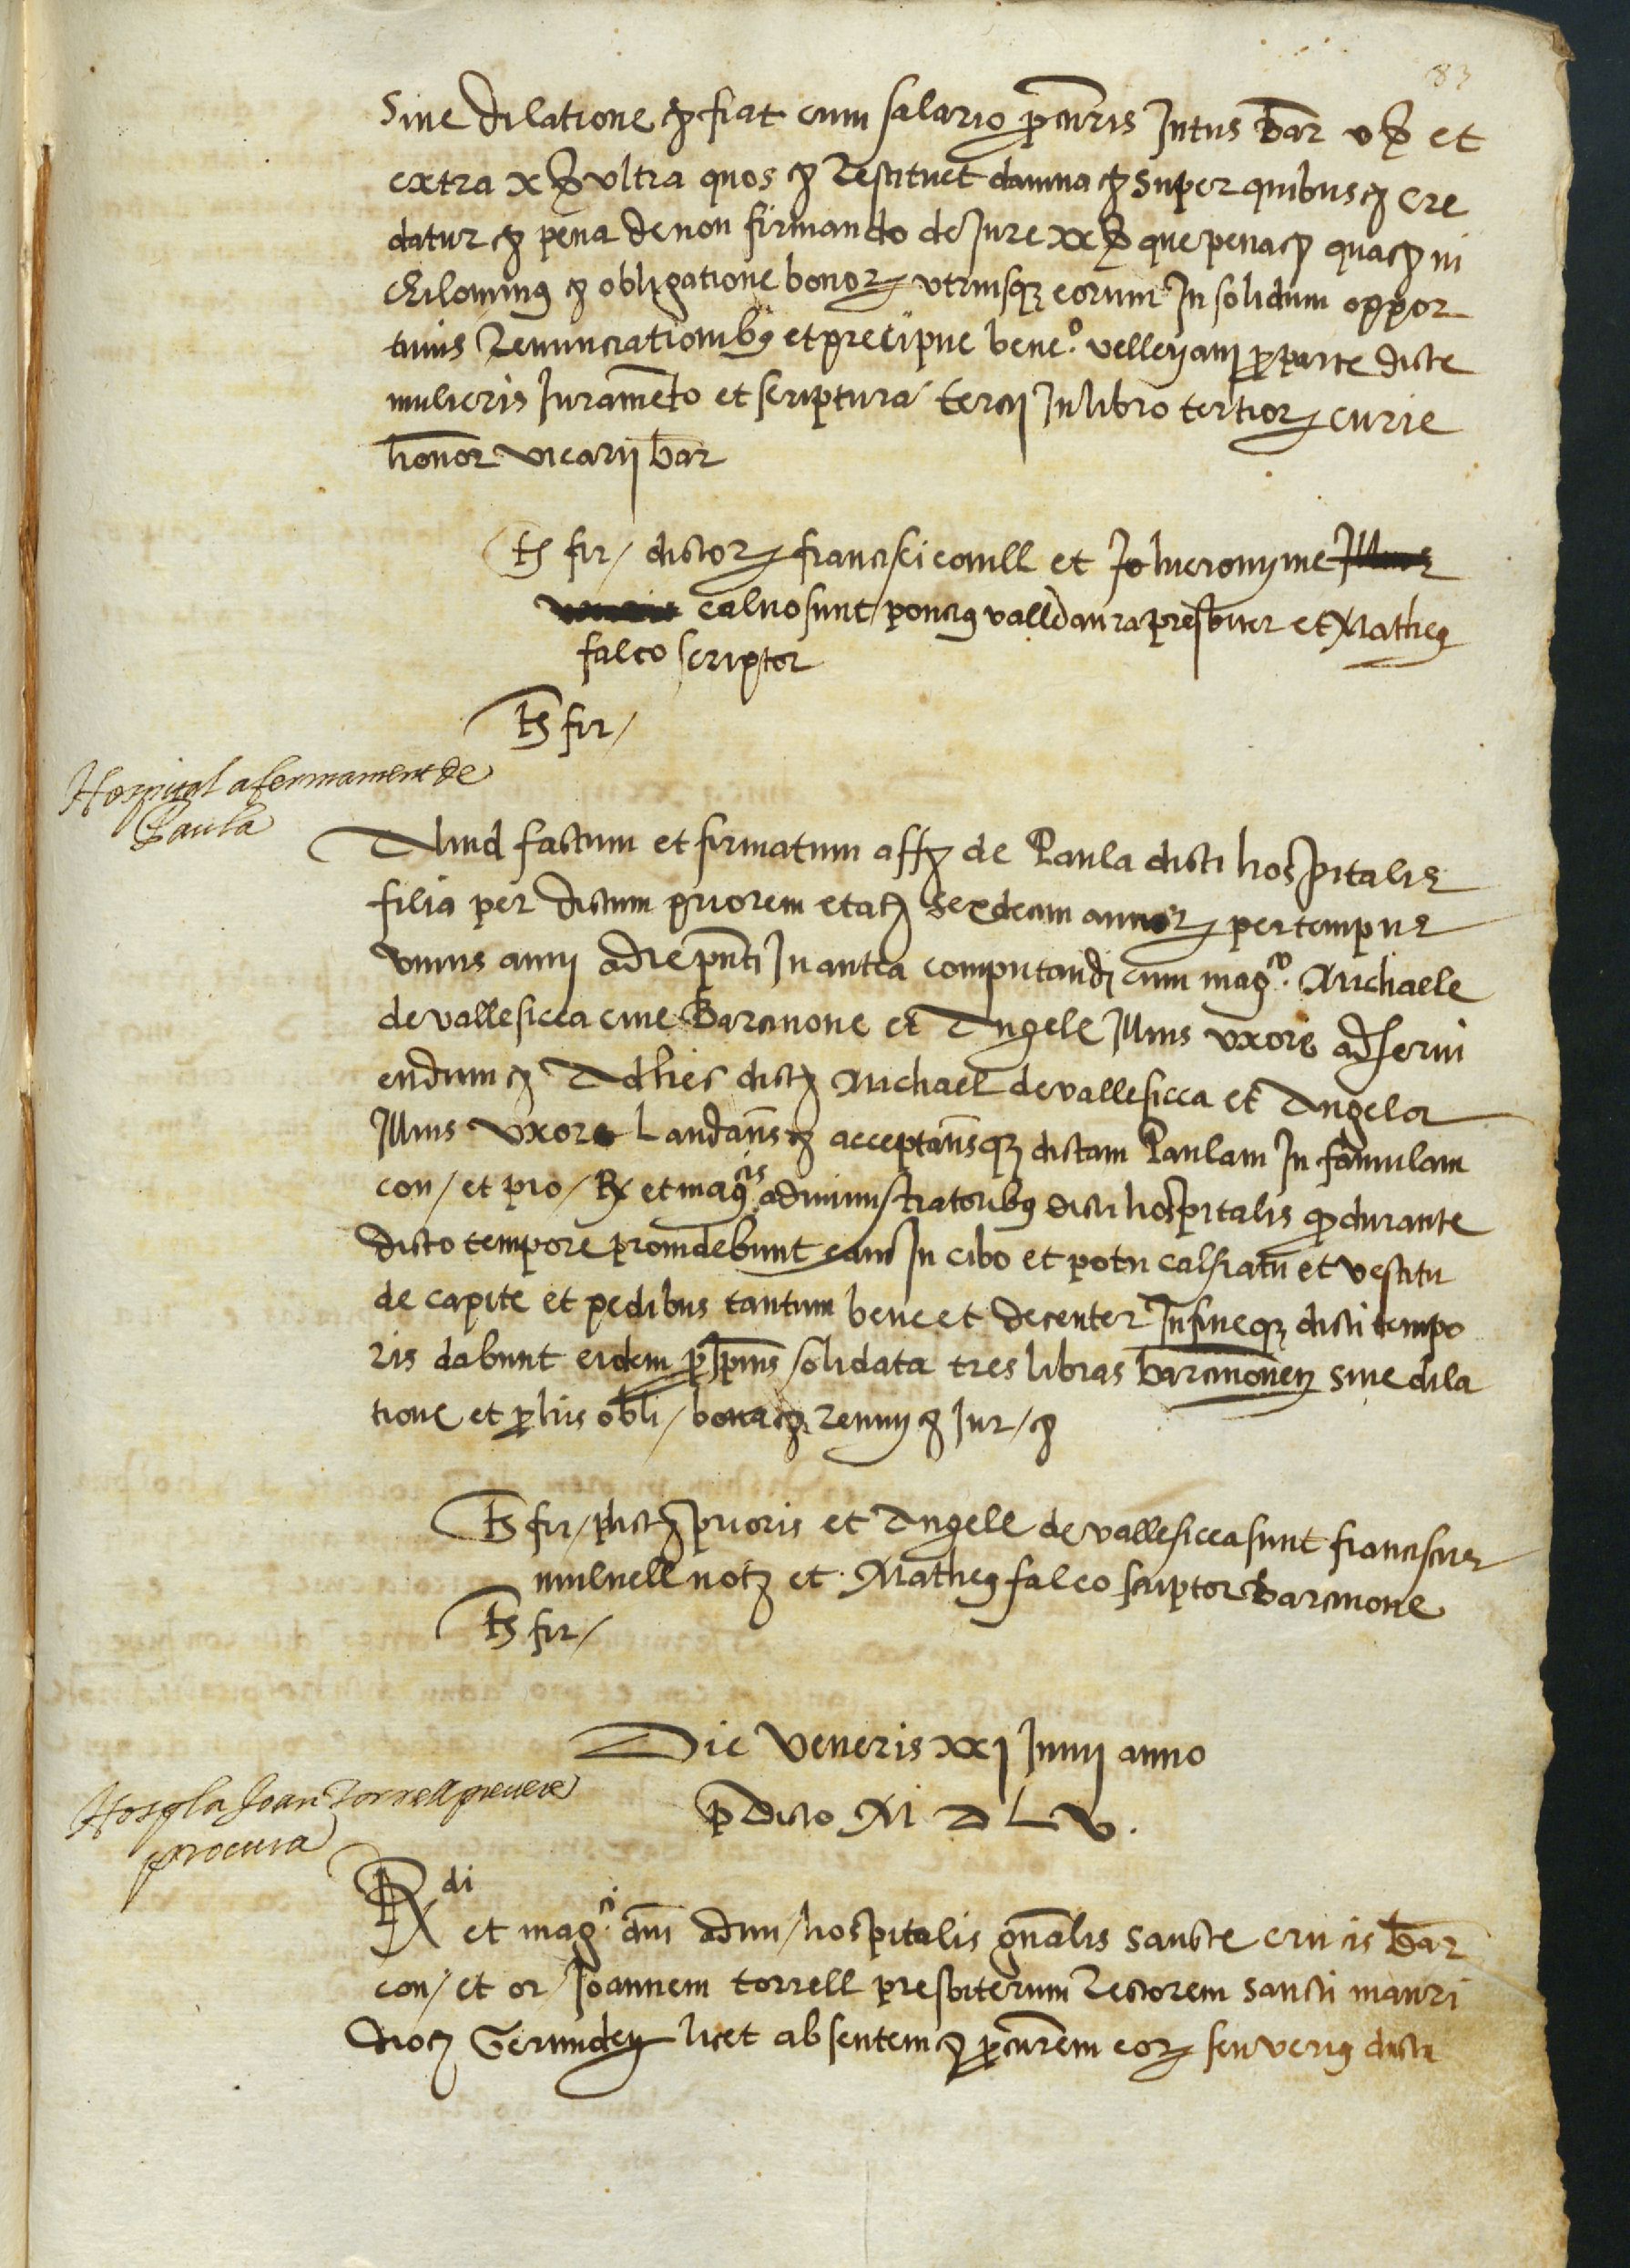 83
Sine dilatione etc fiat cum salario procuris Intus bar v ß et
extra x ß ultra quos etc Restituet damna etc super quibus etc cre
datur etc pena de non firmando de Jure xx ß que pena etc qua etc ni
chilominus etc obligatione bonor utriusque eorum In solidum oppor
tunis Renunciationibus et precipue bene.º velleyani pro parte dicte
mulieris Juramento et scriptura tercij In libro tertior curie
honor vicarij bar
Ts fir / dictor francisci comill et hieronyme
calvo sunt poncius valldaura presbiter et Matheus
falco scriptor
Ts fir /
Hospital afermament de
Paula
Aliud factum et firmatum aff de Paula dicti hospitalis
filia per dictum priorem etatis sexdecim annor per tempus
unius anni a die pnti In antea computandi cum mag.co Michaele
de vallesicca cive Barcinone et Angele Illius uxore ad servi
endum etc Ad hec dictus Michael de vallesicca et Angela
Illius uxor Laudans etc acceptansque dictam Paulam In famulam
con / et pro / Rx et mag.cis administratoribus dicti hospitalis quod durante
dicto tempore providebunt eam In cibo et potu calsiatu et vestitu
de capite et pedibus tantum bene et decenter In fineque dicti tempo
ris dabunt eidem pro Ipius solidata tres libras barcinonen sine dila
tione et pro his obli / bona etc Renun etc Jur / etc
Ts fir / pdict prioris et Angele de vallesicca sunt franciscus
mulnell not et Matheus falco scriptor Barcinone
Ts fir /
Die Veneris xxj Junij anno
predicto M D L V.
Hospla Joan Torrell prevere
procura
Rx di et mag.ci dni adm / hospitalis gnalis sancte crucis bar
con / et or / Joannem torrell presbiterum Rectorem sancti mauri
dioc Gerunden licet absentem etc procurem eor seu verius dicti